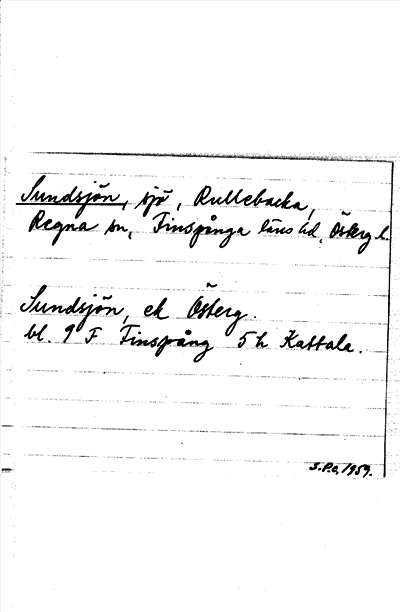 Sundsjön, sjö, Rullebacka,
Regna sn, Finspånga läns hd, Österg l.
Sundsjön, ek Österg.
bl. 9 F Finspång 5 h Kattala.
S.P.o, 1959.